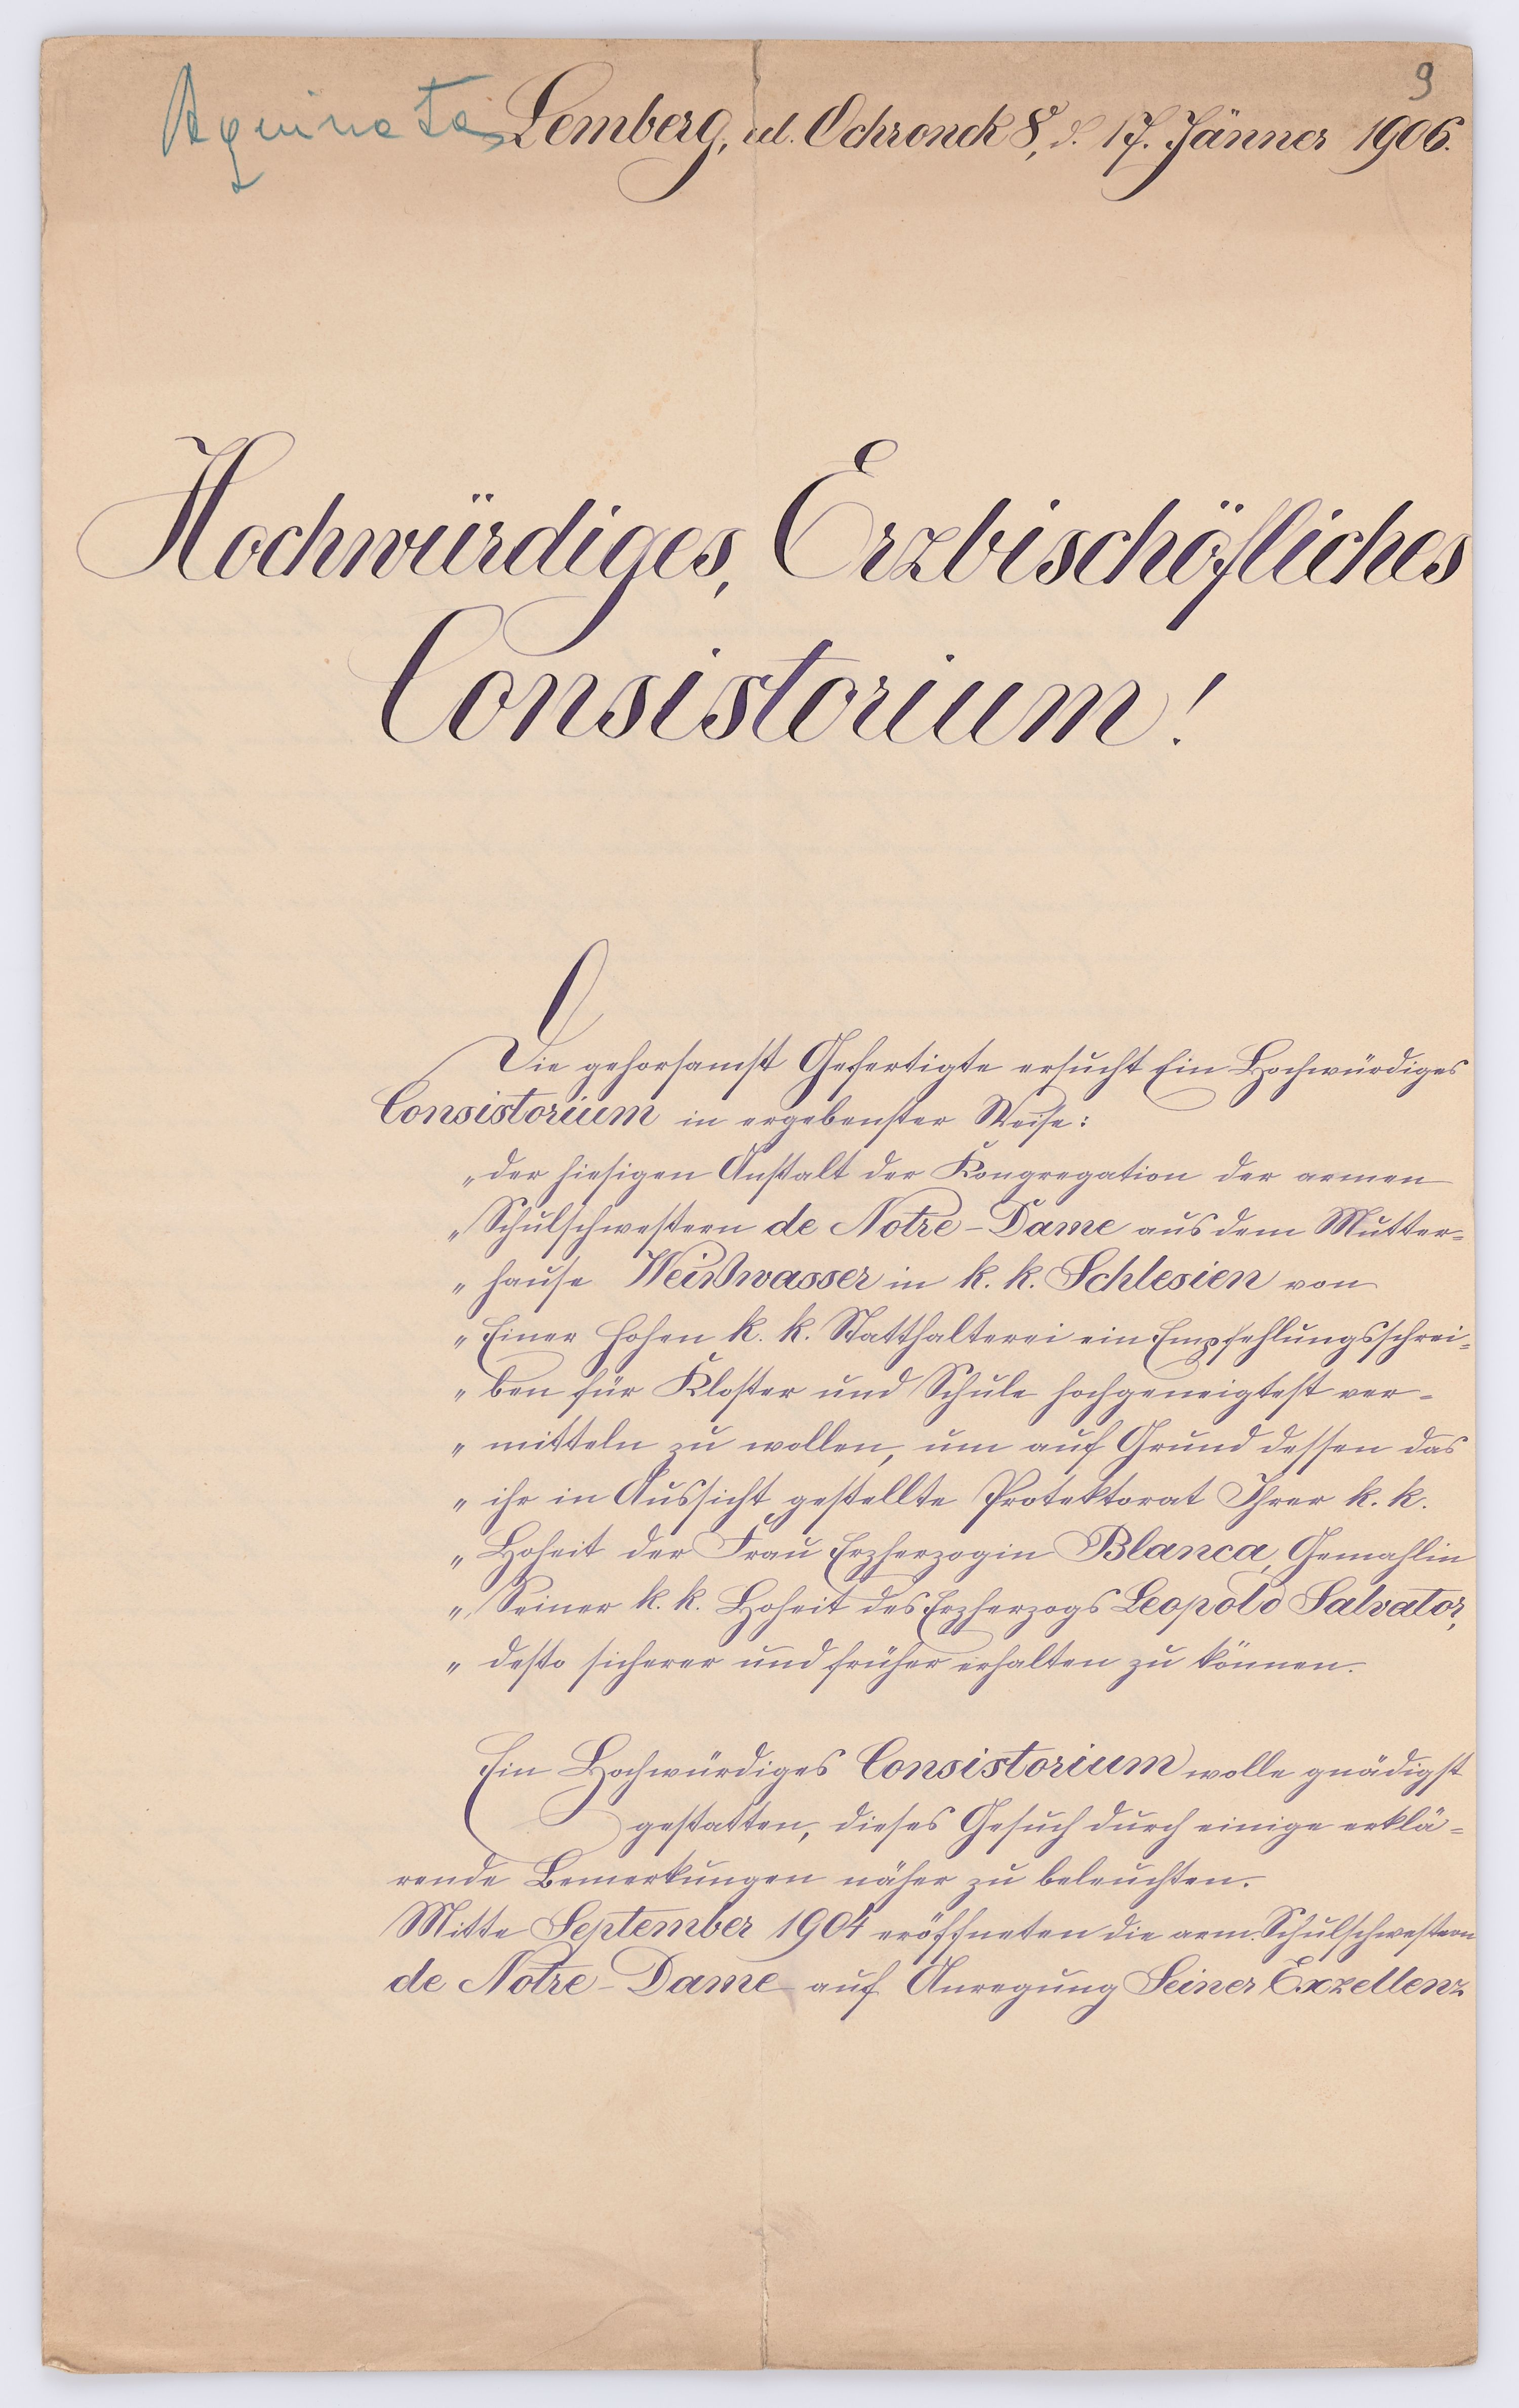 9
Aquinata Lemberg, ul. Ochronek 8, d. 17. Jänner 1906.
Hochwürdiges, Erzbischöfliches
Consistorium!
Die gehorsamst Gefertigte ersucht Ein Hochwürdiges
Consistorium in ergebenster Weise:
„der hiesigen Anstalt der Kongregation der armen
„Schulschwestern de Notre-Dame aus dem Mutter=
„hause Weisswasser in k. k. Schlesien von
„Einer hohen k. k. Statthalterei ein Empfehlungsschrei=
„ben für Kloster und Schule hochgeneigtest ver=
„mitteln zu wollen, um auf Grund dessen das
„ihr in Aussicht gestellte Protektorat Ihrer k. k.
„Hoheit der Frau Erzherzogin Blanca, Gemahlin
„Seiner k. k. Hoheit des Erzherzogs Leopold Salvator,
„desto sicherer und früher erhalten zu können.
Ein Hochwürdiges Consistorium wolle gnädigst
gestatten, dieses Gesuch durch einige erklä=
rende Bemerkungen näher zu beleuchten.
Mitte September 1904 eröffneten die arm. Schulschwestern
de Notre-Dame auf Anregung Seiner Exzellenz